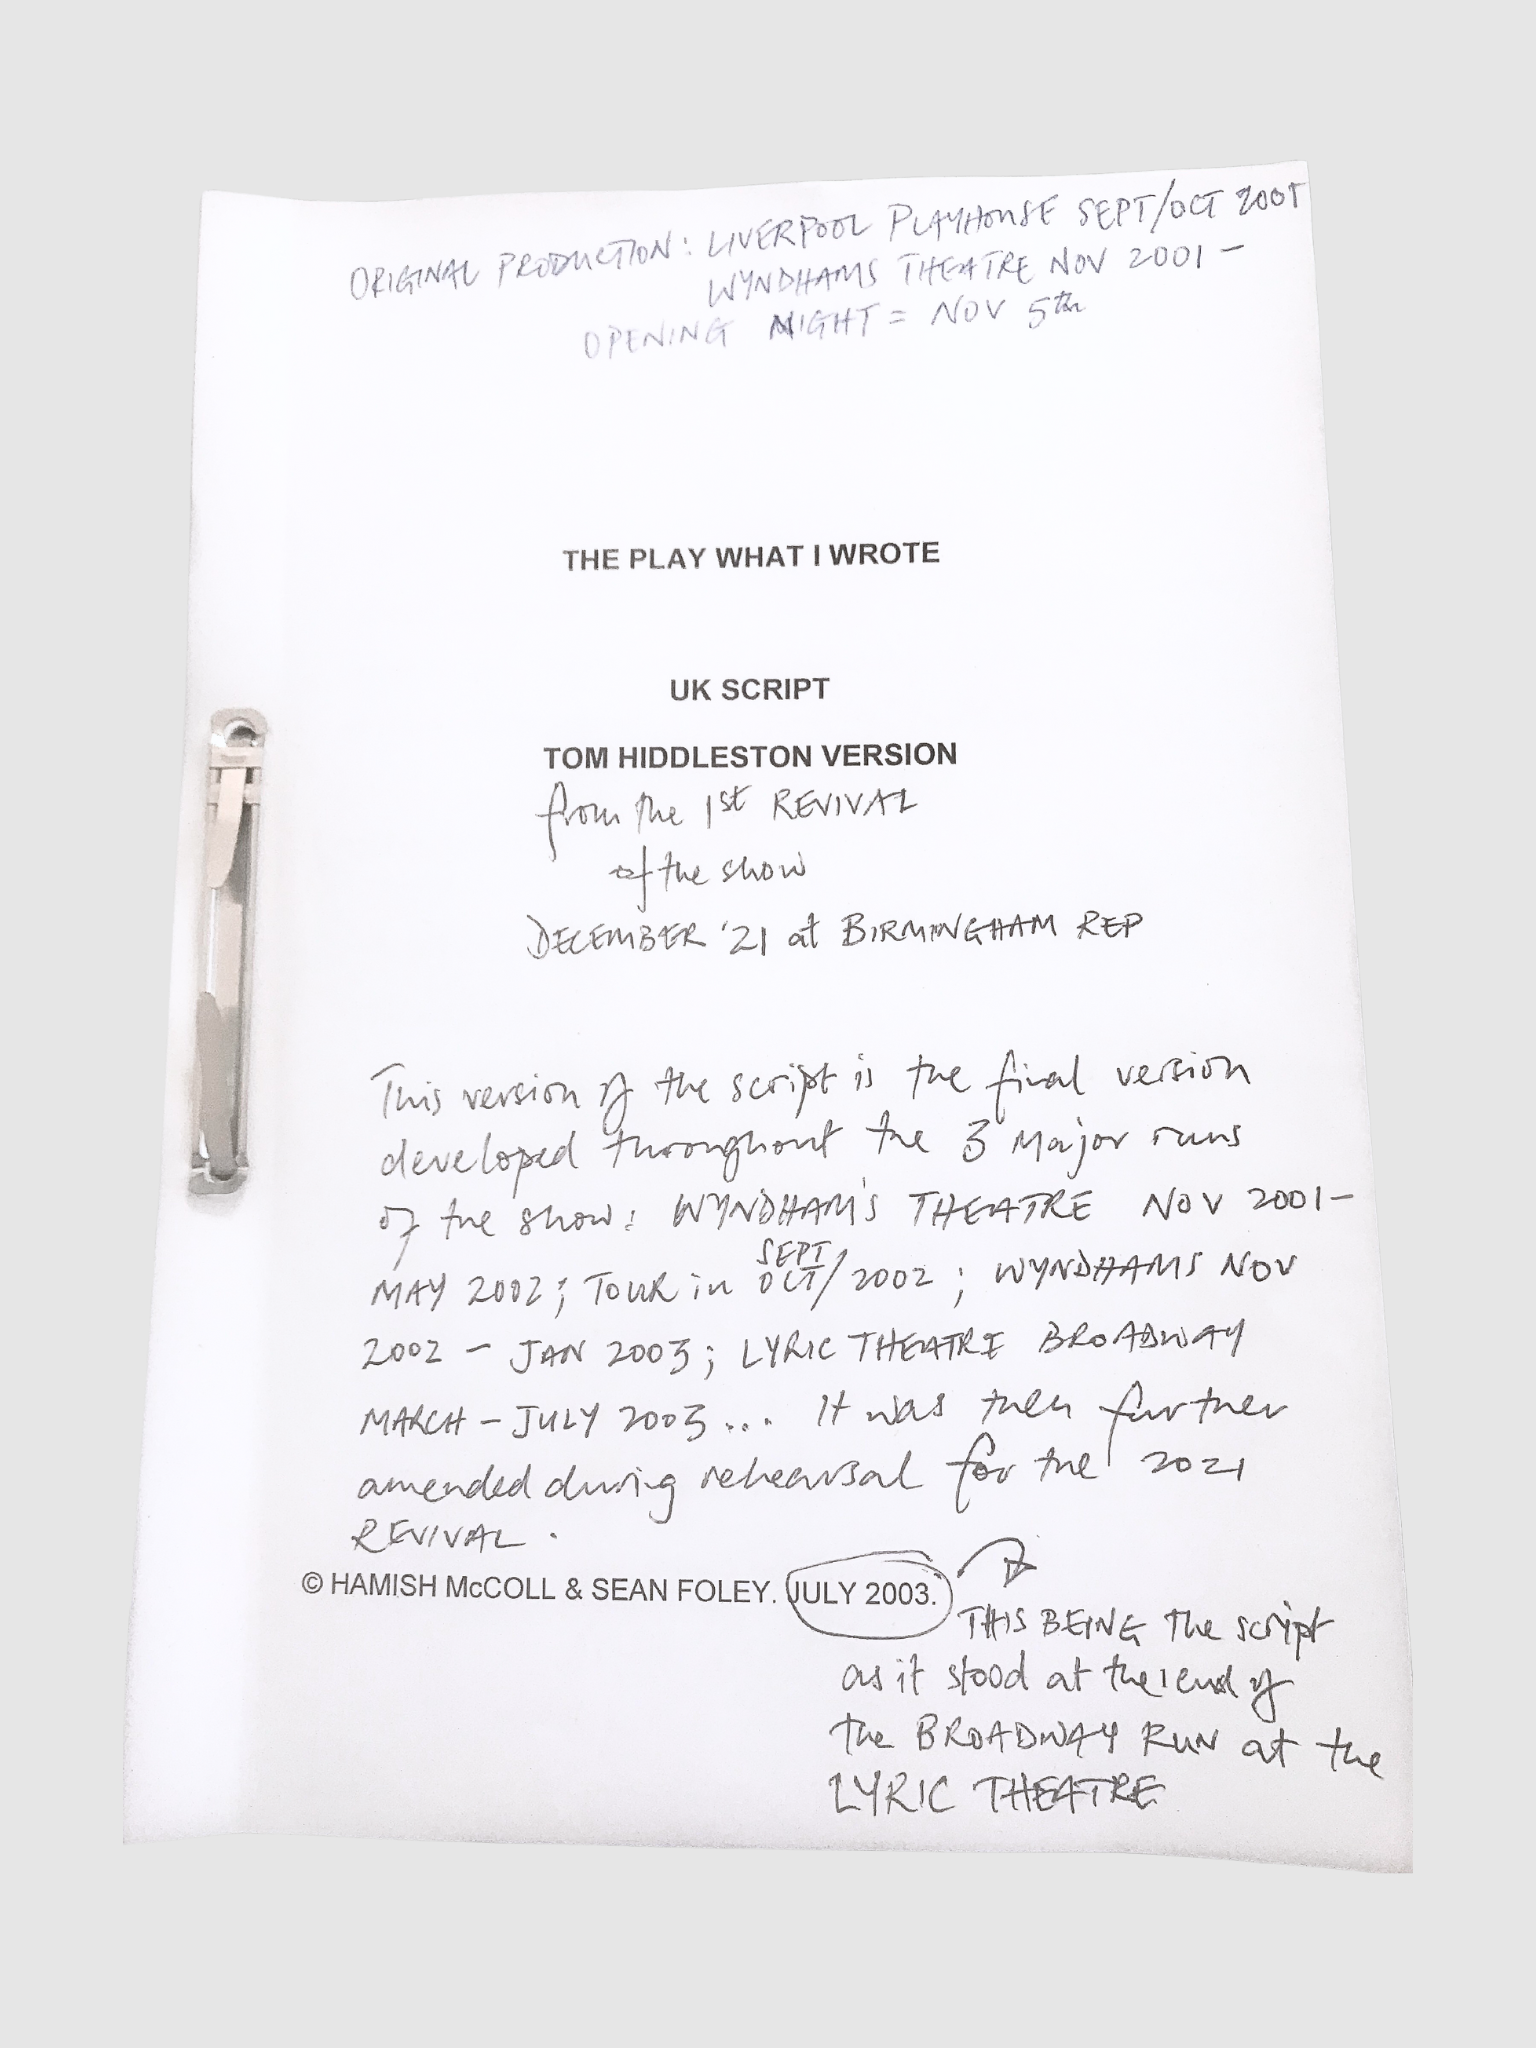 ORIGINAL PRODUCTION: LIVERPOOL PLAYHOUSE SEPT/OCT 2001
WYNDHAMS THEATRE NOV 2001 –
OPENING NIGHT = NOV 5th
THE PLAY WHAT I WROTE
UK SCRIPT
TOM HIDDLESTON VERSION
from the 1st REVIVAL
of the show
DECEMBER '21 at BIRMINGHAM REP
This version of the script is the final version
developed throughout the 3 Major runs
of the show: WYNDHAM'S THEATRE NOV 2001–
SEPT
MAY 2002; TOUR in OCT/2002; WYNDHAMS NOV
2002 – JAN 2003; LYRIC THEATRE BROADWAY
MARCH – JULY 2003... It was then further
amended during rehearsal for the 2021
REVIVAL.
© HAMISH McCOLL & SEAN FOLEY. JULY 2003.
THIS BEING the script
as it stood at the end of
the BROADWAY RUN at the
LYRIC THEATRE